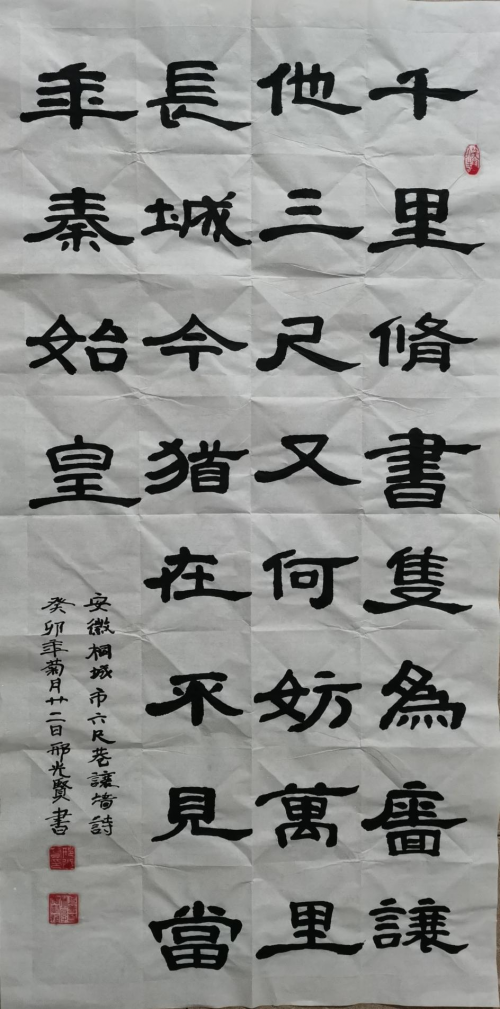 千里脩書隻為廧讓
他三尺又何妨萬里
長城今猶在不見當
年秦始皇
安徽桐城市六尺巷讓墻詩
癸卯年菊月廿二日邢光賢書